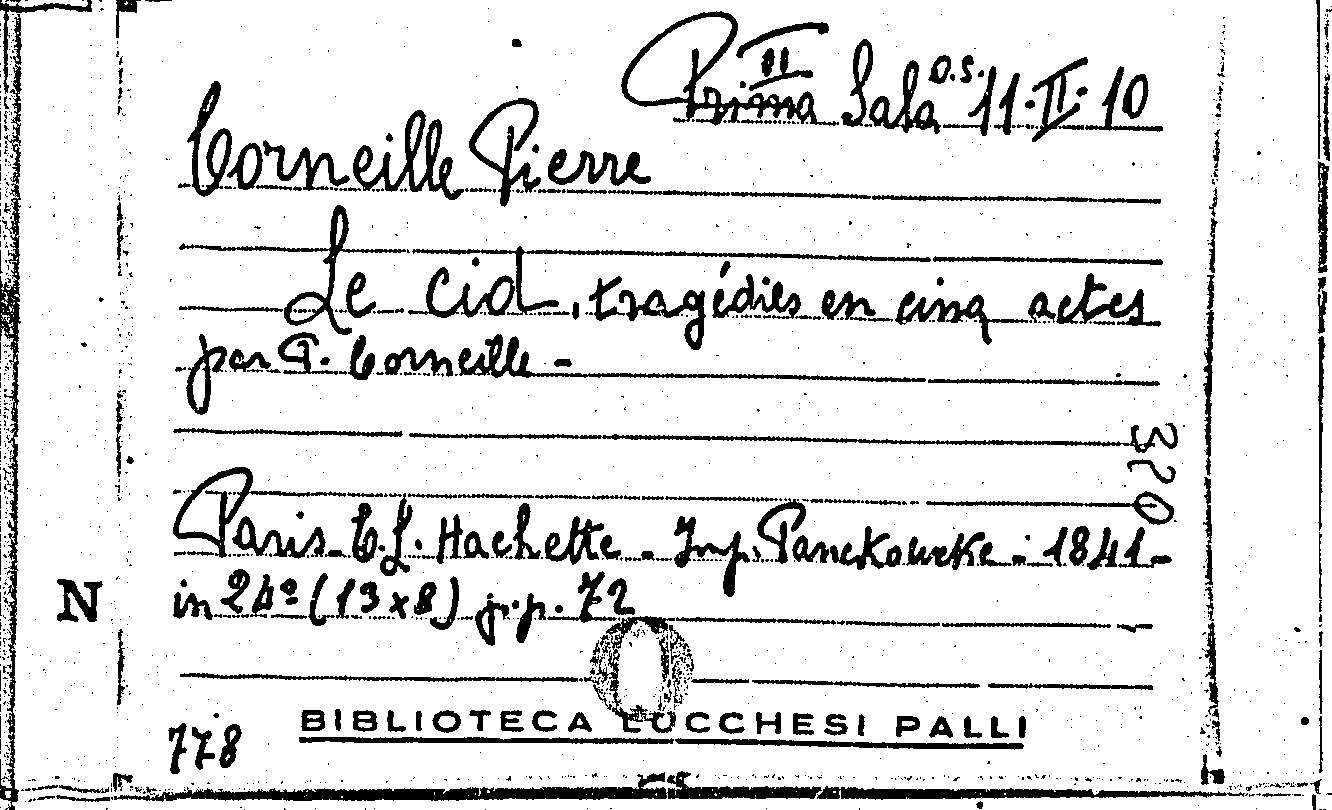 II
Prima Sala D.S. 11·II·10
Corneille Pierre
Le Cid, tragédies en cinq actes
par P. Corneille -
320
Paris - C. L. Hachette - Imp. Panckoucke - 1841 -
in 24º (13 x 8) p.p. 72
N
778
BIBLIOTECA LUCCHESI PALLI